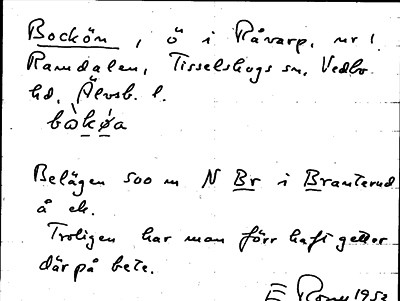 Bockön, ö i Råvarp, nr 1
Ramdalen, Tisselskogs sn, Vedbo
hd, Älvsb. l.
bòkǿa
Belägen 500 m N Br i Branterud
å ek.
Troligen har man förr haft getter
där på bete.
E 1952